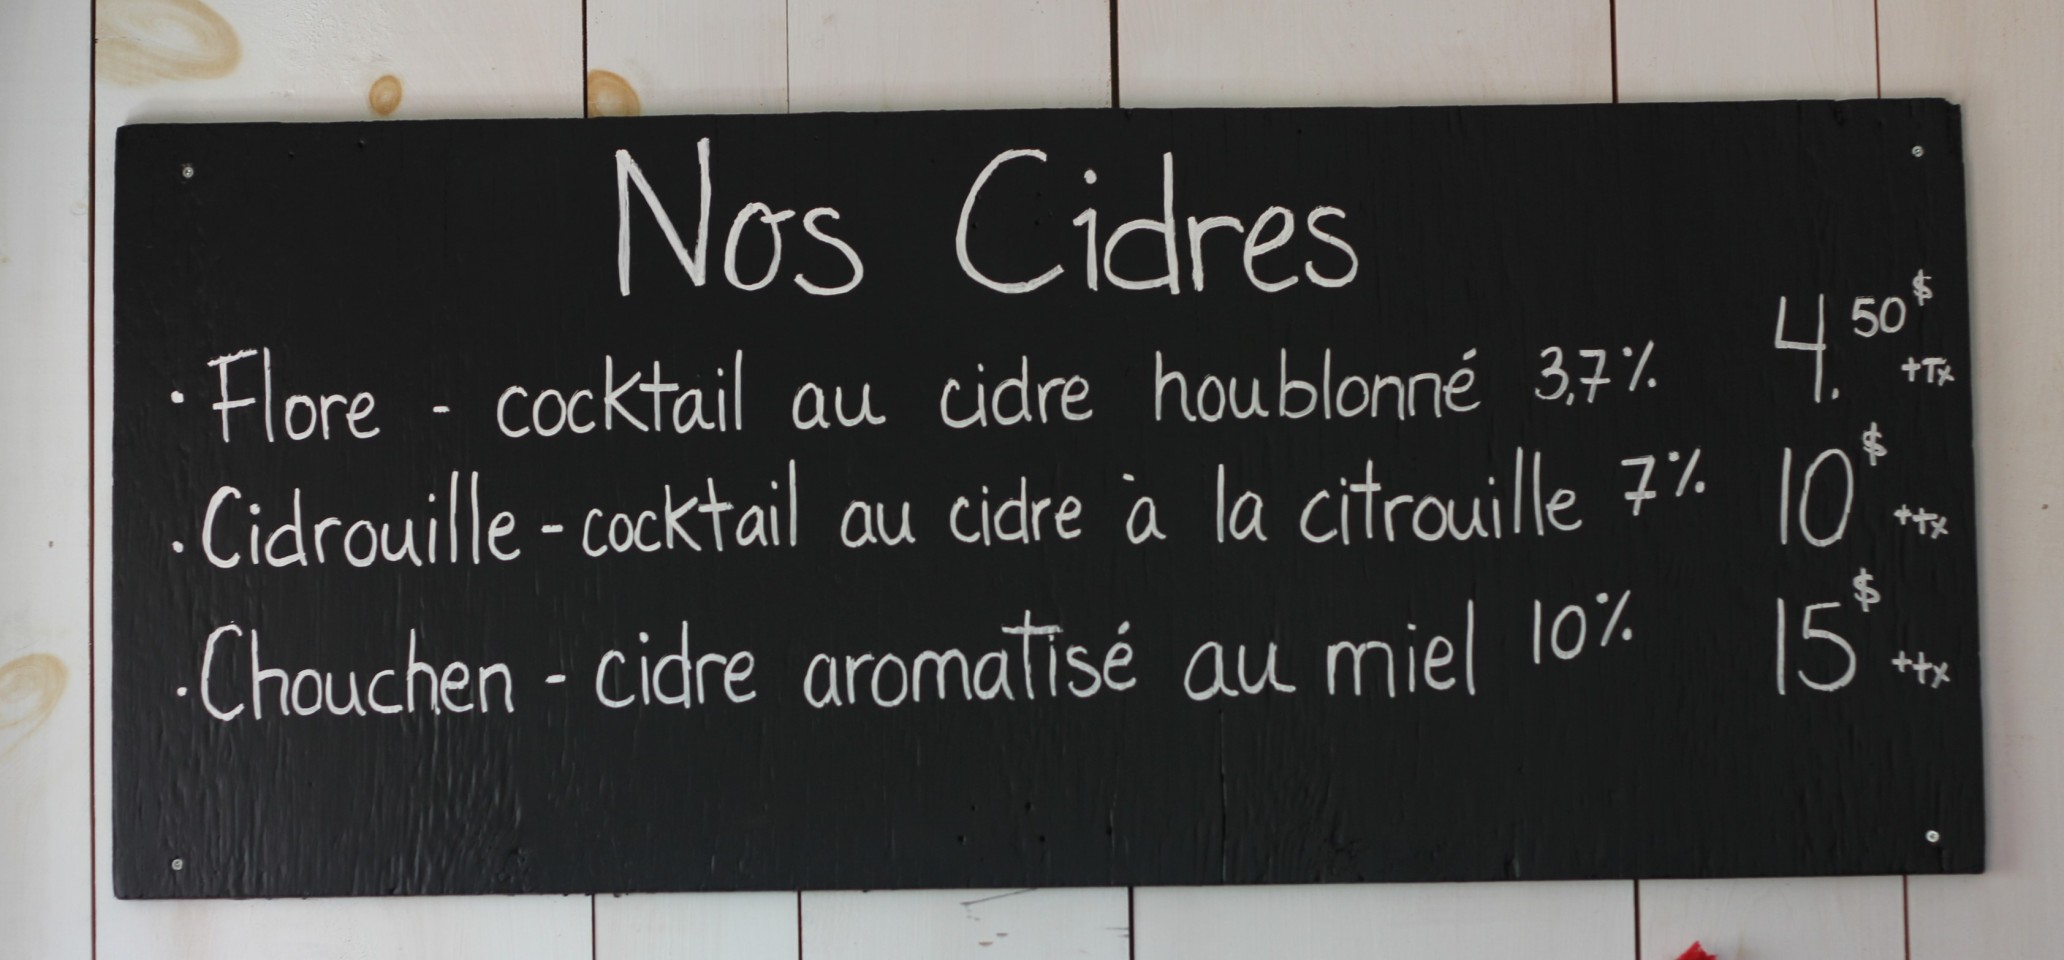 Nos Cidres
· Flore - cocktail au cidre houblonné 3,7% 4.50$ +Tx
· Cidrouille - cocktail au cidre à la citrouille 7% 10$ +tx
· Chouchen - cidre aromatisé au miel 10% 15$ +tx